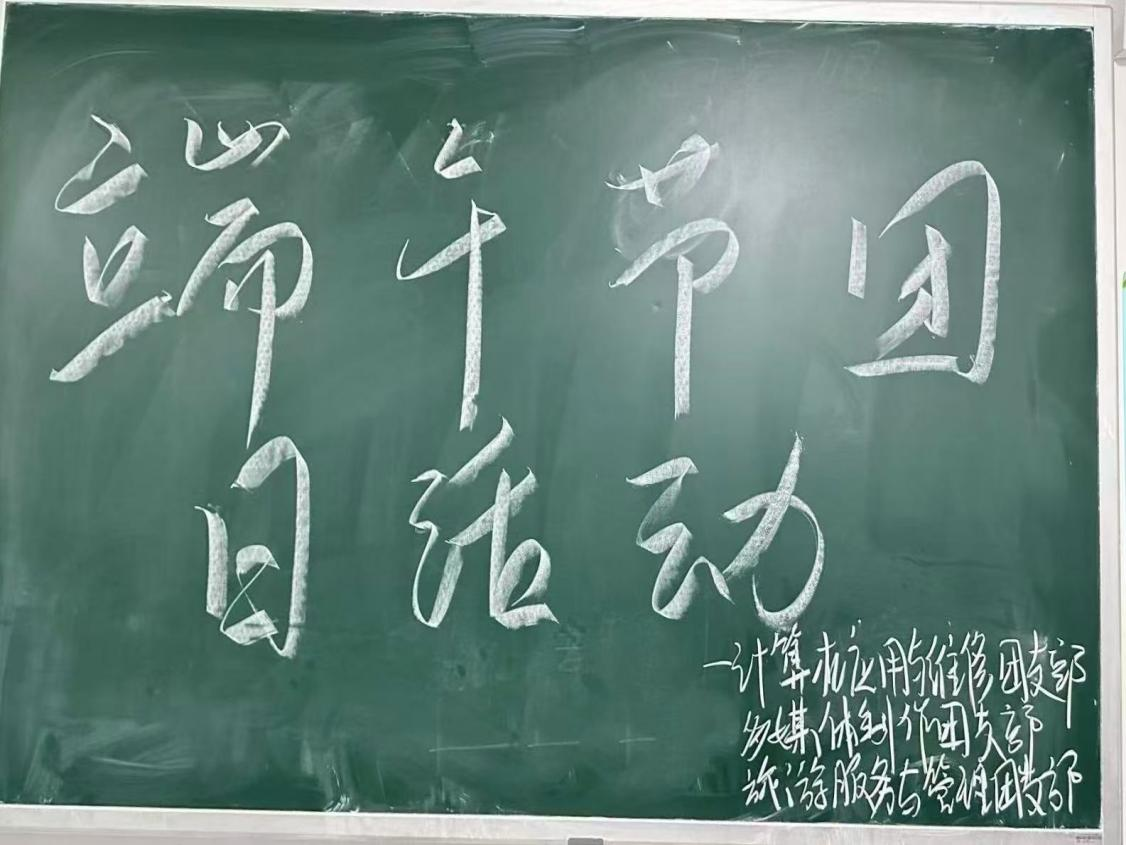 端午节团
日活动
一计算机应用与维修团支部
多媒体制作团支部
旅游服务与管理团支部